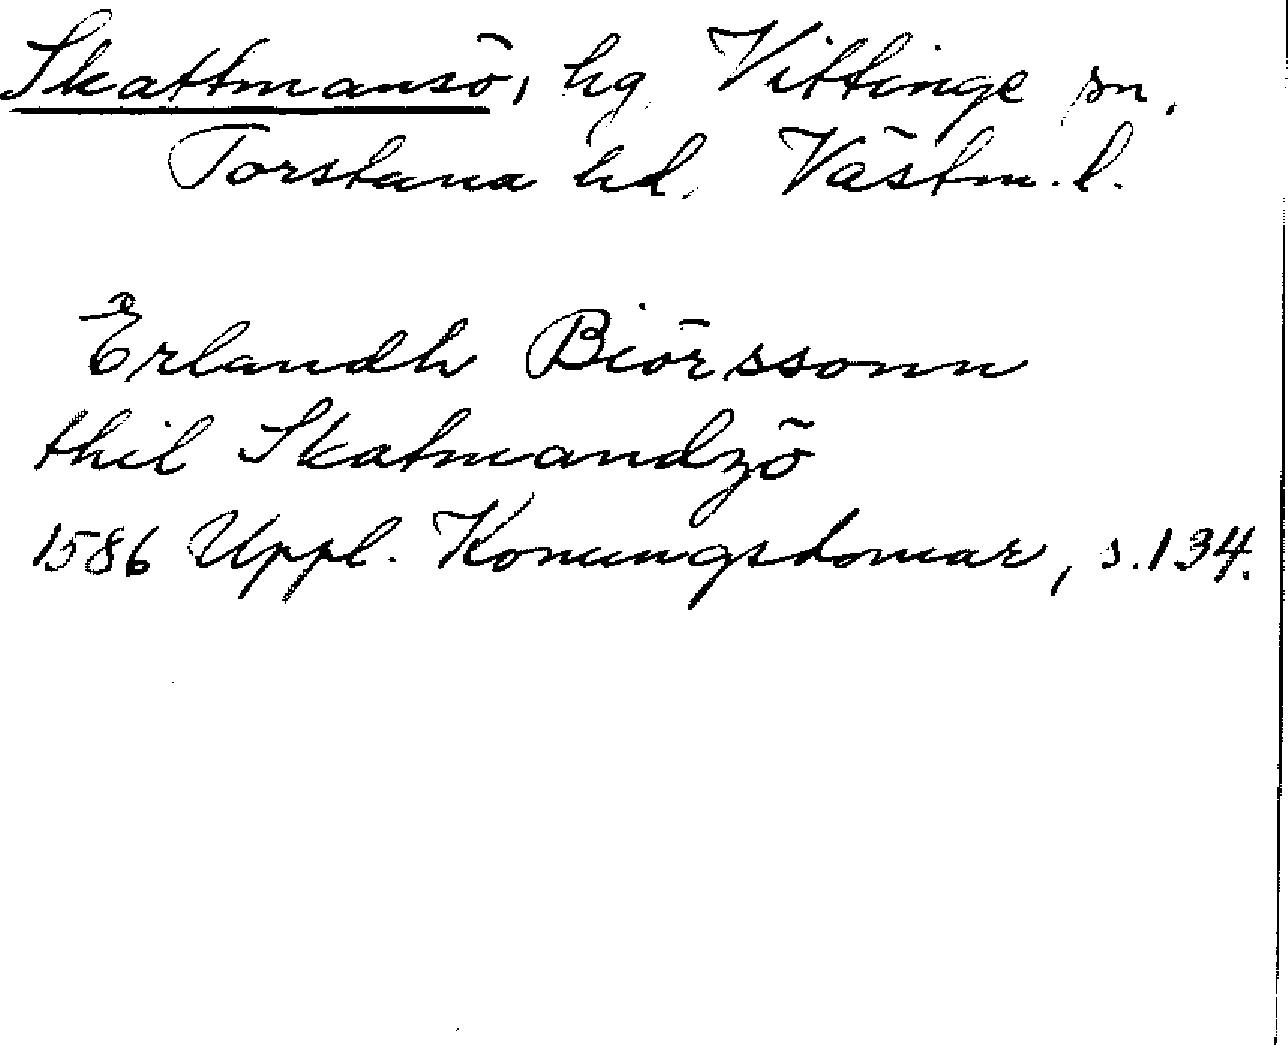 Skattmansö, hg Vittinge sn.
Torstuna hd. Västm. l.
Erlandh Biörssonn
thil Skatmandzö
1586 Uppl. Konungsdomar, s. 134.